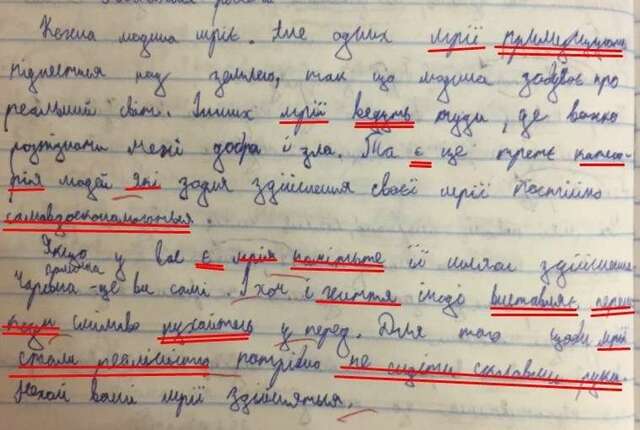 Кожна людина мріє. Але одних мрії примушують
піднятися над землею, так що людина забуває про
реальний світ. Інших мрії ведуть туди, де важко
розпізнати межі добра й зла. Та є ще третє катего-
рія людей які задля здійснення своєї мрії постійно
самовдосконалюються.
Якщо у вас є мрія наміртьте її шлях здійснення
Чарівна паличка - це ви самі. І хоч і життя іноді виставляє
сміливо рухайтесь у перед. Для того щоби мрії
стали реальністю потрібно не сидіти склавши руки.
Нехай ваші мрії здійсняться.